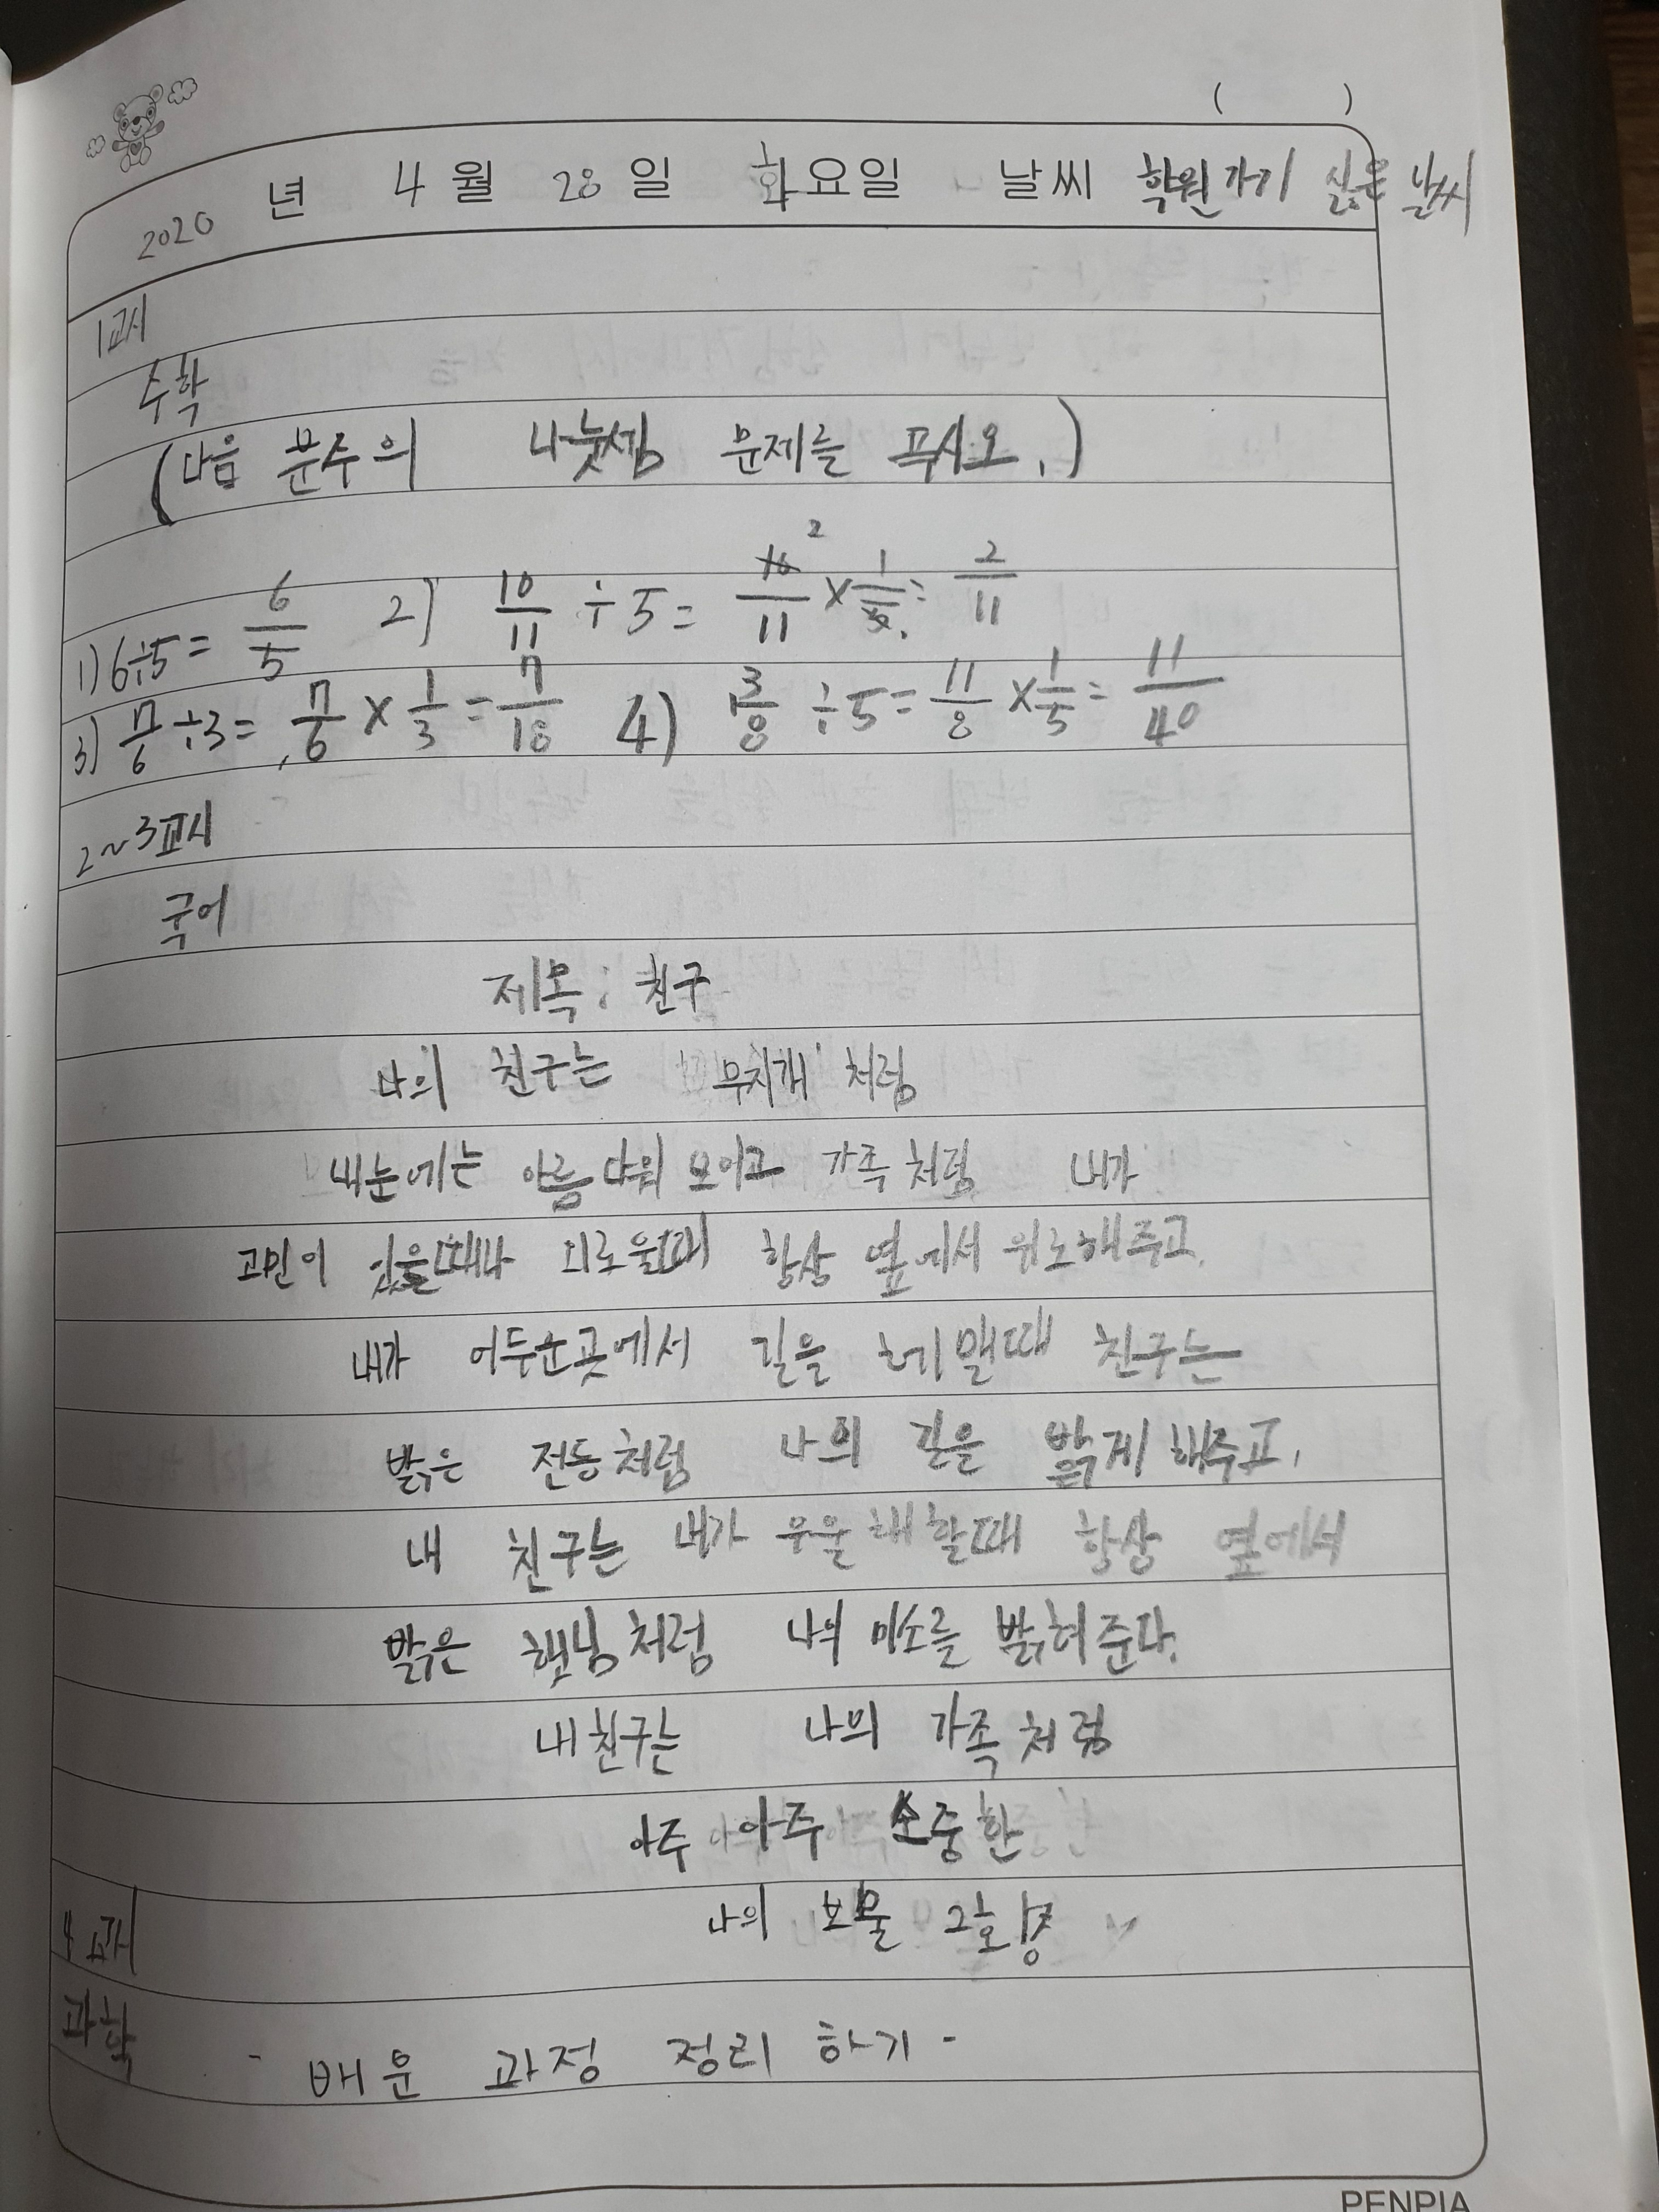 (          )
2020 년 4 월 28 일 화요일 날씨 학원 가기 싫은 날씨
1교시
수학
(다음 분수의 나눗셈 문제를 푸시오.)
1) 6÷5 = 6/5 2) 10/11 ÷ 5 = 10/11 2 × 1/5 = 2/11
3) 7/6 ÷ 3 = 7/6 × 1/3 = 7/18 4) 1 3/8 ÷ 5 = 11/8 × 1/5 = 11/40
2~3교시
국어
제목: 친구
나의 친구는 '무지개' 처럼
내눈에는 아름다워 보이고 가족처럼 내가
고민이 있을때나 외로울때 항상 옆에서 위로해주고.
내가 어두운곳에서 길을 헤맬때 친구는
밝은 전등처럼 나의 길을 밝게 해주고,
내 친구는 내가 우울해할때 항상 옆에서
밝은 햇빛처럼 나의 미소를 밝혀준다.
내친구는 나의 가족처럼
아주 아주 소중한
나의 보물
4교시
과학
- 배운 과정 정리 하기 -
PENPIA